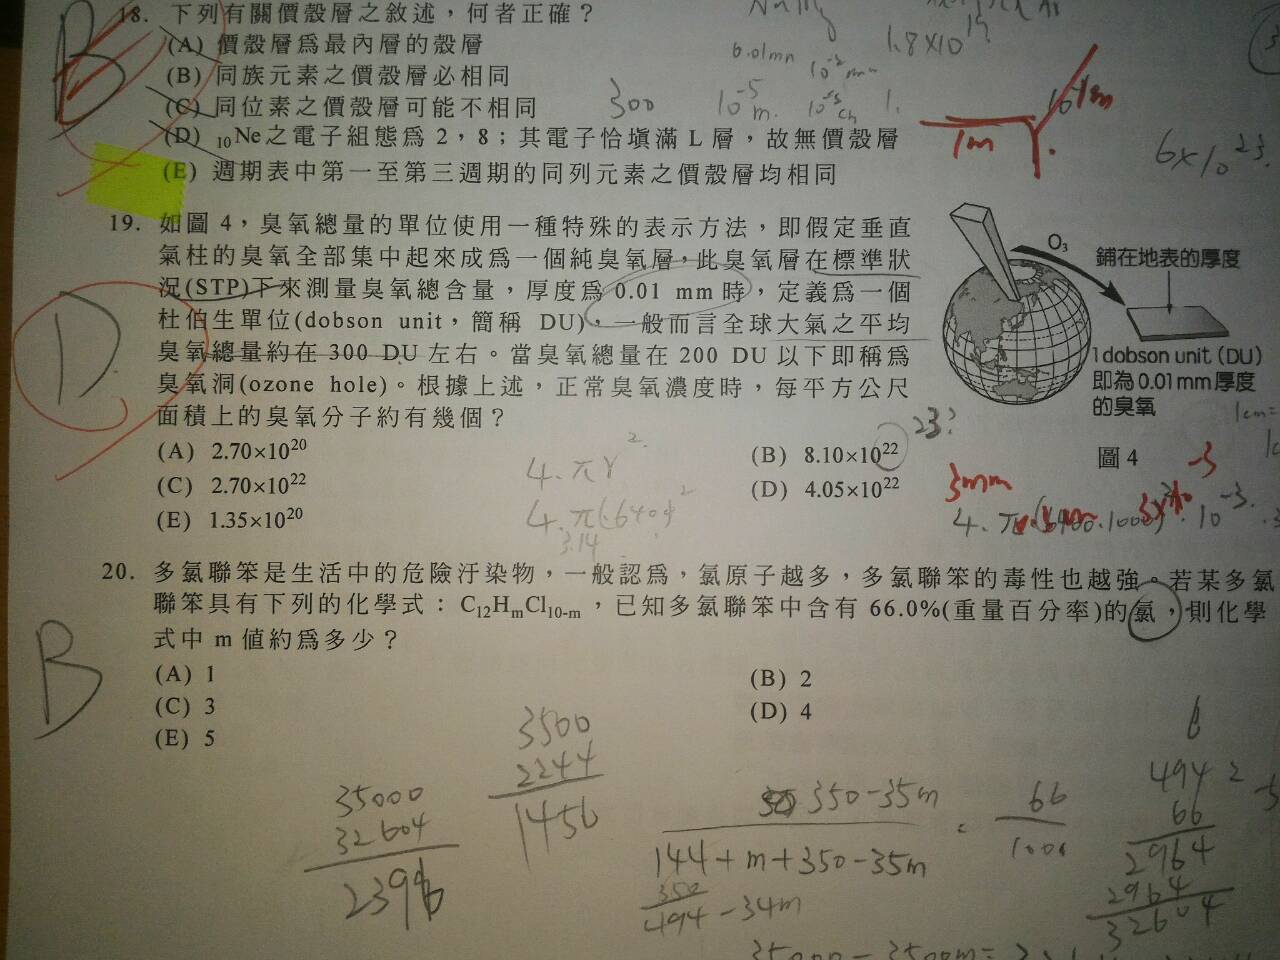 18. 下列有關價殼層之敘述，何者正確？
(A) 價殼層為最內層的殼層
(B) 同族元素之價殼層必相同
(C) 同位素之價殼層可能不相同
(D) ₁₀Ne之電子組態為 2，8；其電子恰填滿 L 層，故無價殼層
(E) 週期表中第一至第三週期的同列元素之價殼層均相同
B
300
1.8×10
6×10²³
1m
19. 如圖 4，臭氧總量的單位使用一種特殊的表示方法，即假定垂直
氣柱的臭氧全部集中起來成為一個純臭氧層，此臭氧層在標準狀
況(STP)下來測量臭氧總含量，厚度為 0.01 mm 時，定義為一個
杜伯生單位(dobson unit，簡稱 DU)，一般而言全球大氣之平均
臭氧總量約在 300 DU 左右。當臭氧總量在 200 DU 以下即稱為
臭氧洞(ozone hole)。根據上述，正常臭氧濃度時，每平方公尺
面積上的臭氧分子約有幾個？
(A) 2.70×10²⁰
(B) 8.10×10²²
(C) 2.70×10²²
(D) 4.05×10²²
(E) 1.35×10²⁰
D
O₃
鋪在地表的厚度
1 dobson unit (DU)
即為 0.01 mm 厚度
的臭氧
圖 4
23?
4.πr²
3.14
3mm
20. 多氯聯笨是生活中的危險汙染物，一般認為，氯原子越多，多氯聯笨的毒性也越強。若某多氯
聯笨具有下列的化學式：C₁₂HₘCl₁₀₋ₘ，已知多氯聯笨中含有 66.0%(重量百分率)的氯，則化學
式中 m 值約為多少？
(A) 1
(B) 2
(C) 3
(D) 4
(E) 5
B
35000
32604
2396
3500
2244
1456
350-35m
144+m+350-35m
350
494-34m
66
494
66
2964
2964
32604